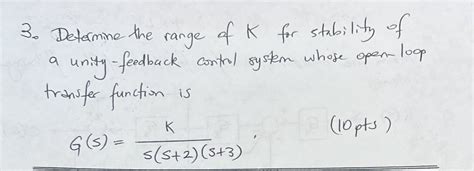 3. Determine the range of K for stability of
a unity-feedback control system whose open loop
transfer function is
G(s) = K / s(s+2)(s+3) . (10pts)